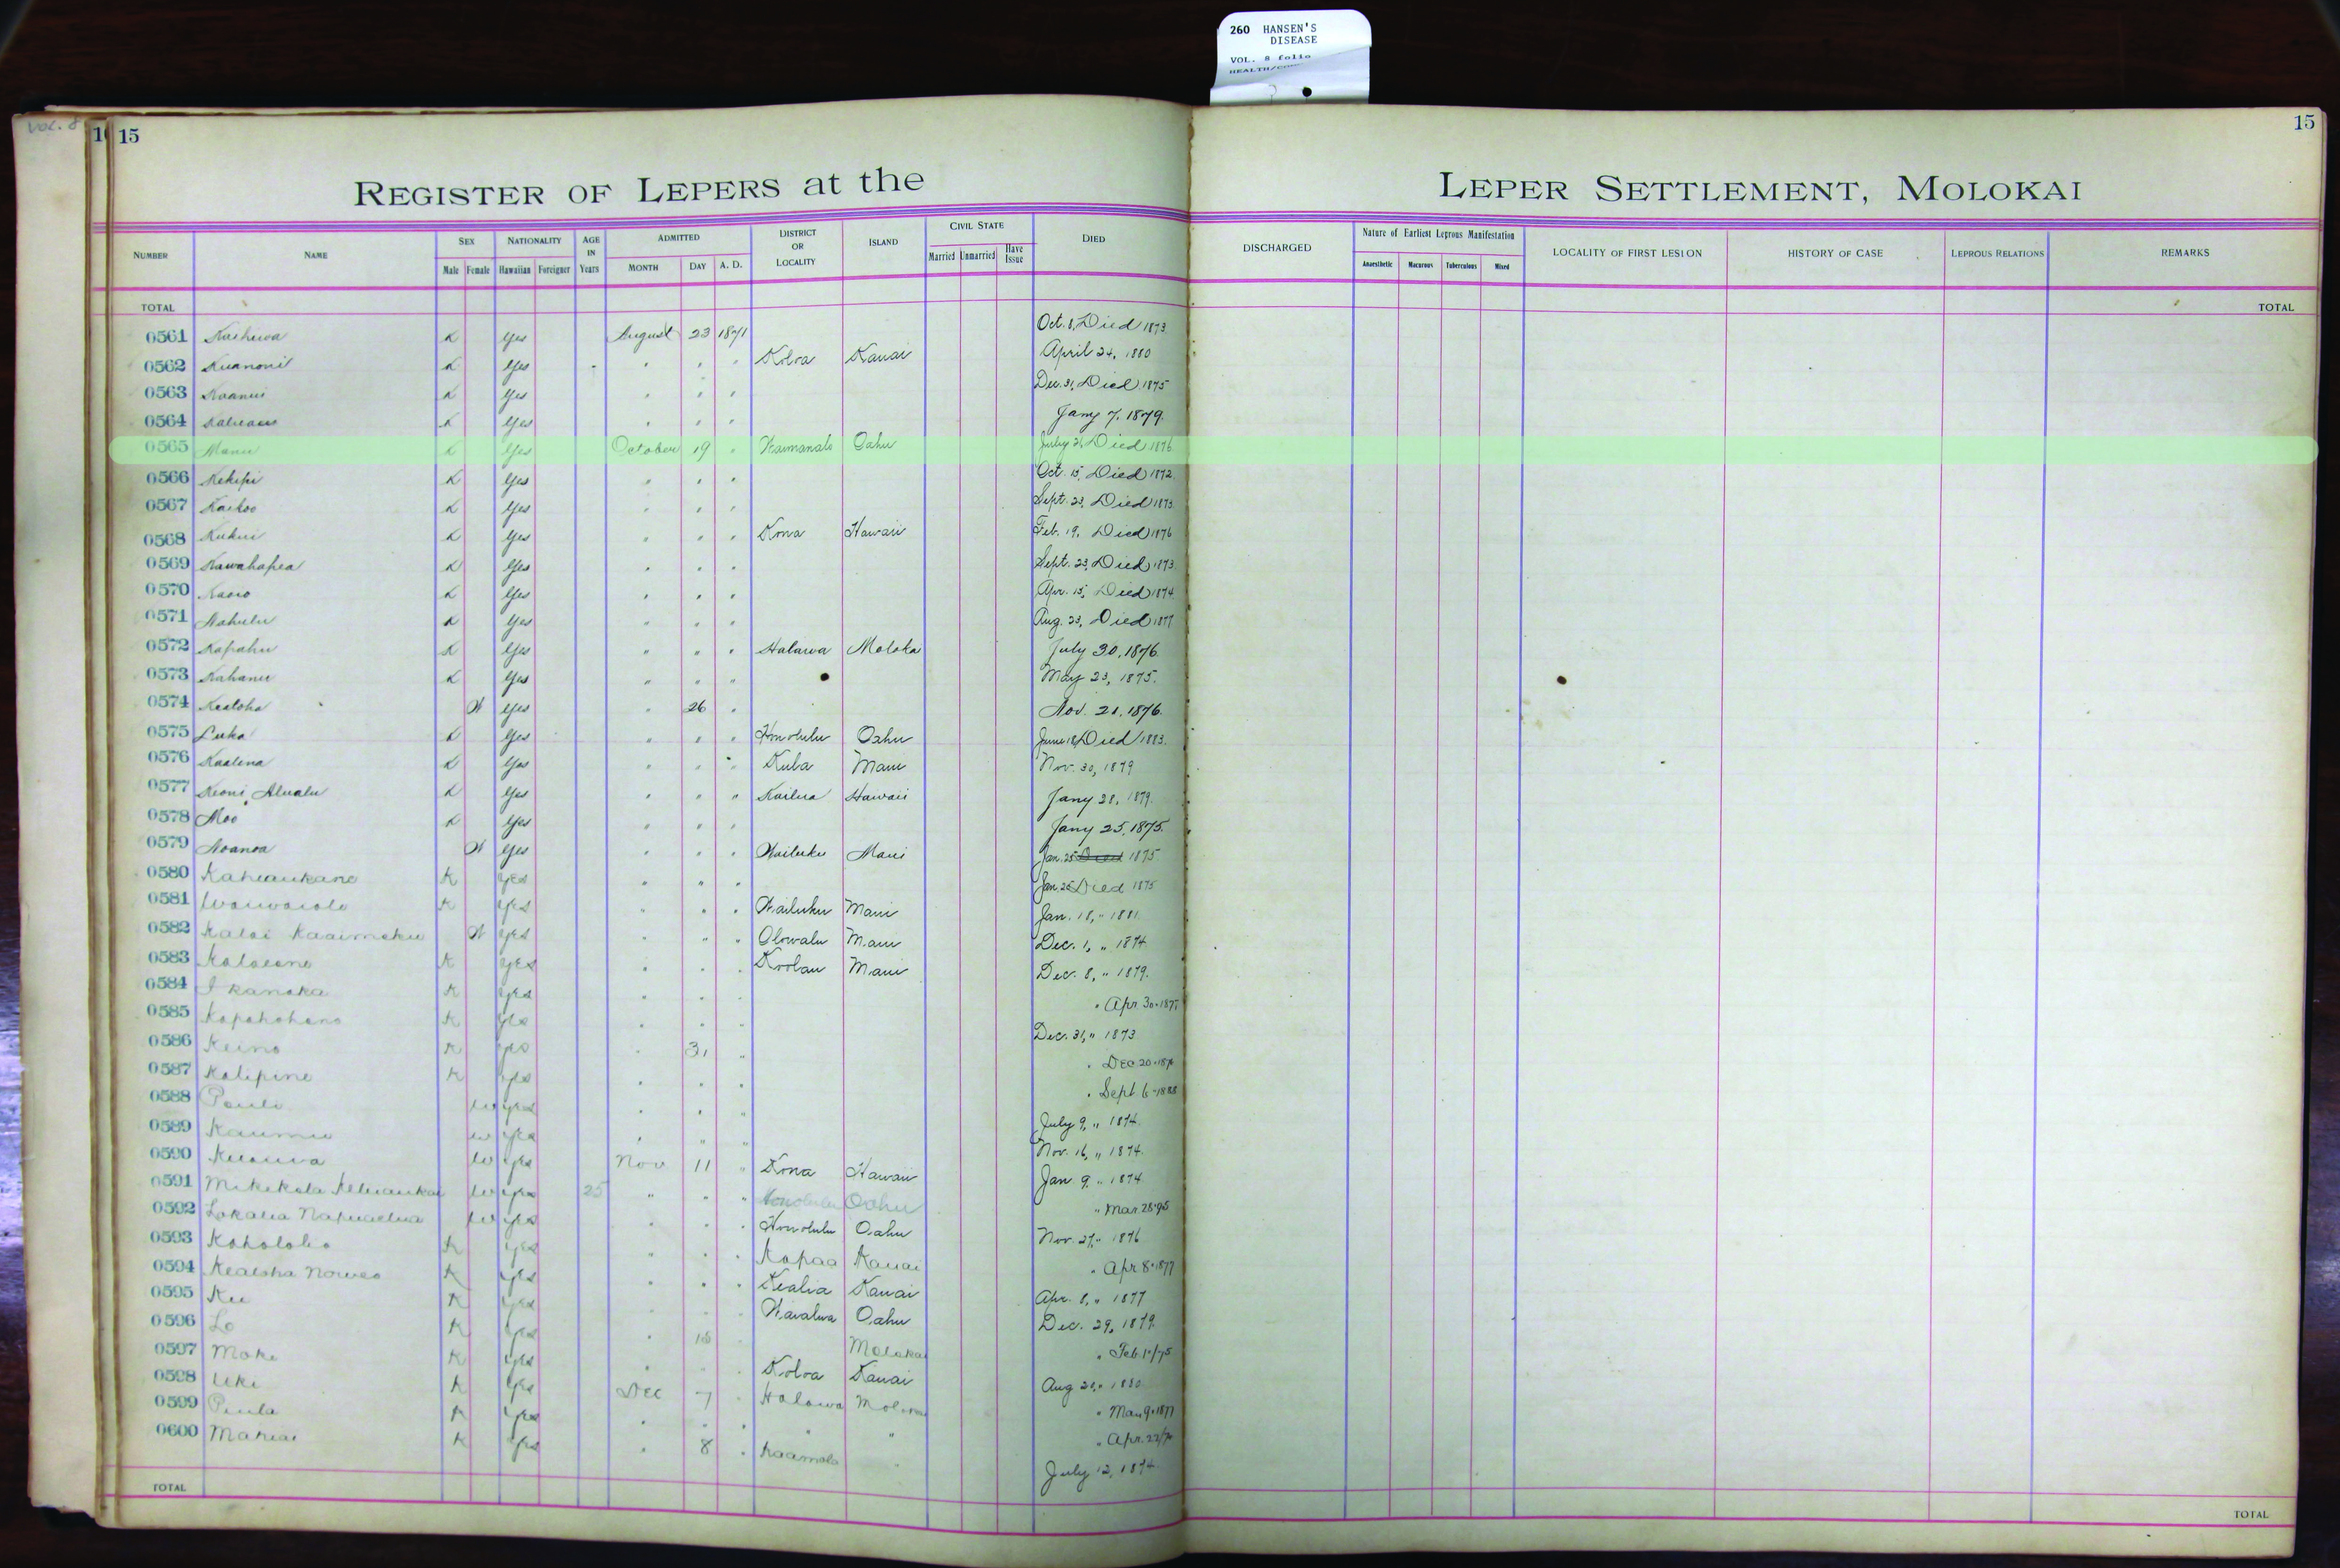 260 HANSEN'S
DISEASE
VOL. 8 folio
VOL. 8
15
15
REGISTER OF LEPERS at the LEPER SETTLEMENT, MOLOKAI
NUMBER NAME SEX NATIONALITY AGE IN Years ADMITTED DISTRICT OR LOCALITY ISLAND CIVIL STATE DIED DISCHARGED Nature of Earliest Leprous Manifestation LOCALITY OF FIRST LESION HISTORY OF CASE LEPROUS RELATIONS REMARKS
Male Female Hawaiian Foreigner MONTH DAY A. D. Married Unmarried Have Issue Anaesthetic Macurous Tuberculous Mixed
TOTAL TOTAL
0561 K Yes August 23 1871 Oct. 8, Died 1873.
0562 Kuanonii K Yes " " " Koloa Kauai April 24, 1880
0563 Koanui K Yes " " " Dec. 31, Died 1875
0564 K Yes " " " Jany 7, 1879.
0565 Manu K Yes October 19 " Waimanalo Oahu July 21, Died 1876
0566 Kekipi K Yes " " " Oct. 15, Died 1872
0567 Kaikoo K Yes " " " Sept. 23, Died 1873
0568 Kukui K Yes " " " Kona Hawaii Feb. 19, Died 1876
0569 Kawahapea K Yes " " " Sept. 23, Died 1873
0570 K Yes " " " Apr. 15, Died 1874
0571 Nahulu K Yes " " " Aug. 23, Died 1877
0572 Kapahu K Yes " " " Halawa Moloka July 30, 1876
0573 Kahanu K Yes " " " May 23, 1875.
0574 Kealoha W Yes " 26 " Nov. 21, 1876.
0575 Luka K Yes " " " Honolulu Oahu June 18, Died 1883.
0576 Kaalena K Yes " " " Kula Maui Nov. 30, 1879
0577 Keoni Alualu K Yes " " " Kailua Hawaii Jany 28, 1879.
0578 Moo K Yes " " " Jany 25, 1875.
0579 Noanoa W Yes " " " Wailuku Maui Jan. 25 Died 1875
0580 Kaheaukane K Yes " " " Jan. 25 Died 1875
0581 Waiwaiole K Yes " " " Wailuku Maui Jan. 18, " 1881
0582 Kalai Kaaimoku W Yes " " " Olowalu Maui Dec. 1, " 1874
0583 K Yes " " " Koolau Maui Dec. 8, " 1879.
0584 I kanaka K Yes " " " " Apr 30-187
0585 Kapahohano K Yes " " " Dec. 31, " 1873
0586 Keino K Yes " 31 " " Dec 20-187
0587 Kalipine K Yes " " " " Sept 6-1888
0588 Pauli W Yes " " " July 9, " 1874
0589 Kaumu W Yes " " " Nov. 16, " 1874.
0590 W Yes Nov 11 " Kona Hawaii Jan 9, " 1874
0591 W Yes 25 " " " Honolulu Oahu " Mar. 28-95
0592 Lokalia Napuaelua W Yes " " " Honolulu Oahu Nov. 27, " 1876
0593 Koholoko K Yes " " " Kapaa Kauai " Apr 8-1877
0594 Kealoha Noweo K Yes " " " Kealia Kauai Apr. 8, " 1877
0595 Ku K Yes " " " Waialua Oahu Dec. 29, 1879
0596 Lo K Yes " 18 " Moloka " Feb. 1-/75
0597 Moke K Yes " " " Koloa Kauai Aug 20, " 1880
0598 Uki K Yes Dec 7 " Halawa " Mar. 9-1877
0599 Piula K Yes " " " " " " Apr. 22/7
0600 Mahiai K Yes " 8 " Kaamola " July 12, 1874
TOTAL TOTAL